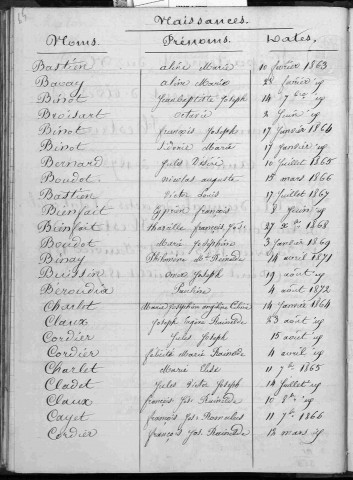 Naissances.
Noms. Prénoms. Dates.
Bastien Aline Marie 10 février 1863
Bavay Aline Maria 22 février id
Binot Jean Baptiste Joseph 14 7bre id
Broisart Octavie 2 Juin id
Binot françois Joseph 17 Janvier 1864
Binot Léonie Marie 17 Janvier id
Bernard Jules Désiré 10 Juillet 1865
Boudot Nicolas auguste 15 mars 1866
Bastien Victor Louis 17 Juillet 1867
Bienfait Cyprien françois 8 Juin id
Bienfait françois Jos. 27 Xbre 1868
Boudot Marie Joséphine 3 Janvier 1869
Binay Philomène 14 avril 1871
Buissin Omer Joseph 19 août id
Béroudia Pauline 4 août 1872
Charlot Maria Joséphine Céline 14 Janvier 1864
Claux Joseph Eugène Rainilde 23 août id
Cordier Jules Joseph 15 août id
Cordier félicité Marie Rainilde 4 avril id
Charlet Marie Elise 11 7bre 1865
Cladet Jules Victor Joseph 14 Juillet id
Claux françois Jos. Rainilde 10 8bre id
Cayet françois Jos. Romulus 11 7bre 1866
Cordier françois Jos. Rainilde 12 mars id